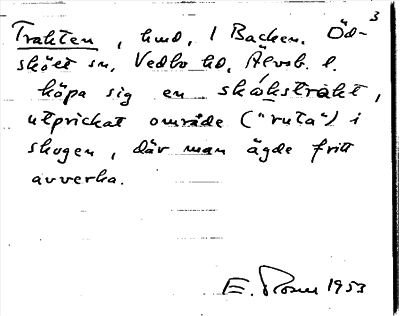 Trakten, hmd, 1 Backen. Öd- 3
sköët sn, Vedbo hd, Älvsb. l.
köpa sig en skó̀kstràkt,
utprickat område ("ruta") i
skogen, där man ägde fritt
avverka.
E. Rosen 1953